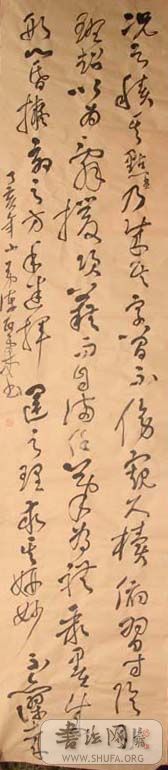 况云積其點畫乃成其字曾不傍窺尺牘俯習寸陰
班超以為辭援項籍而自滿任筆為體聚墨成
形心昏擬效之方手迷揮運之理求其妍妙不亦謬哉
丁亥年
书法网
WWW.SHUFA.ORG